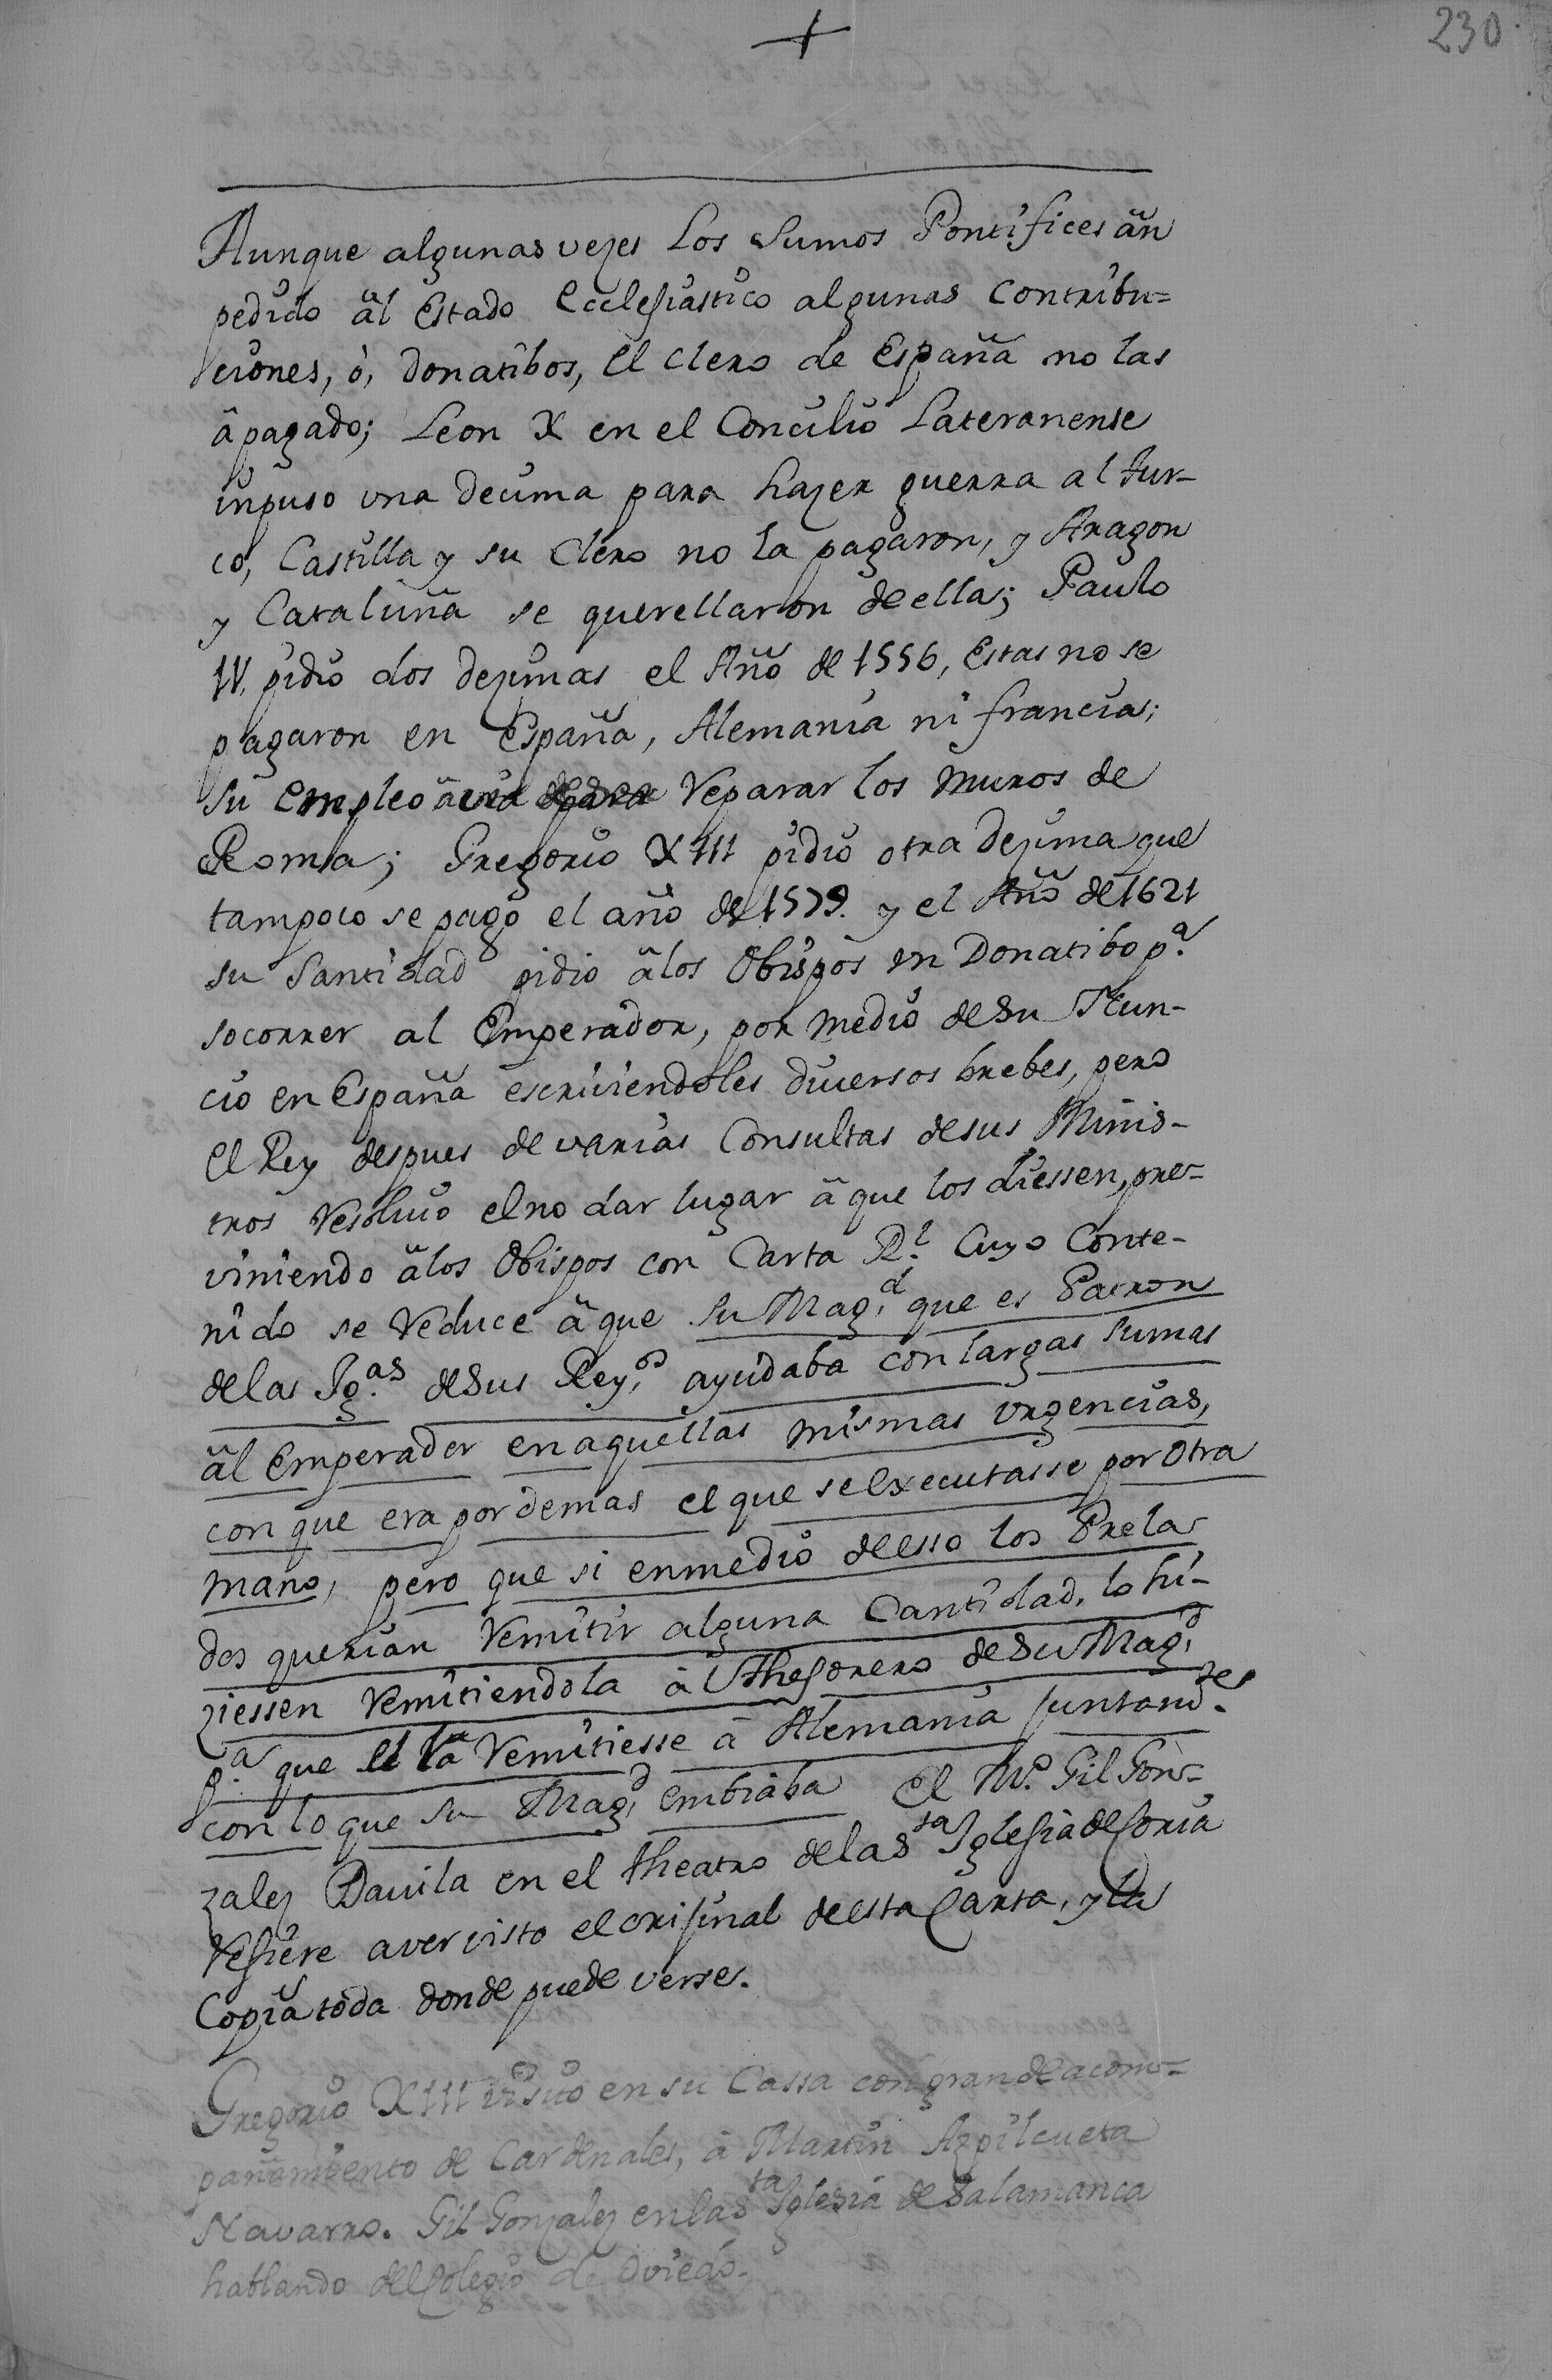 230.
Aunque algunas vezes Los Sumos Pontifices ān
pedido āl Estado Ecclesiastico algunas Contribu=
ciones, ò, Donatibos, El Clero de España no las
āpagado; Leon X en el Concilio Lateranense
inpuso vna decima para hazer guerra al tur-
co, Castilla y su Clero no la pagaron, y Aragon
y Cataluña se querellaron de ella; Paulo
IV. pidio dos dezimas el Año de 1556, Estas no se
pagaron en España, Alemania ni francia;
su empleo āera para Reparar los muros de
Roma; Gregorio XIII pidio otra dezima que
tampoco se pago el año de 1579. y el Año de 1621
su Santidad pidio ālos Obispos un Donatibo p.ª
socorrer al Emperador, por medio de su Nun-
cio en España escriviendoles diversos brebes, pero
El Rey despues de varias Consultas de sus Minis-
tros Resolvio el no dar lugar āque los diessen, pre-
viniendo ālos Obispos con Carta R.l Cuyo Conte-
nido se Reduce āque su Mag.d que es Patron
delas Ig.as de sus Rey.os ayudaba con largas sumas
āl Emperador en aquellas mismas vrgencias,
con que era por demas el que se executasse por otra
mano, pero que si en medio de esso los Prela-
dos querian Remitir alguna Cantidad, lo hi-
ziessen Remitiendola āl Thesorero de su Mag.d
p.ª que el la Remitiesse ā Alemania juntam.te
con lo que su Mag.d embiaba El M.º Gil Gon-
zalez Davila en el theatro de la S.ta Iglesia de Soria
Refiere aver visto el orijinal de esta Carta, y la
Copia toda donde puede verse.
Gregorio XIII visito en su Cassa con grande acom=
pañamiento de Cardenales, à Martin Azpilcueta
Navarro. Gil Gonzalez en la S.ta Iglesia de Salamanca
hablando del Colegio de Oviedo.